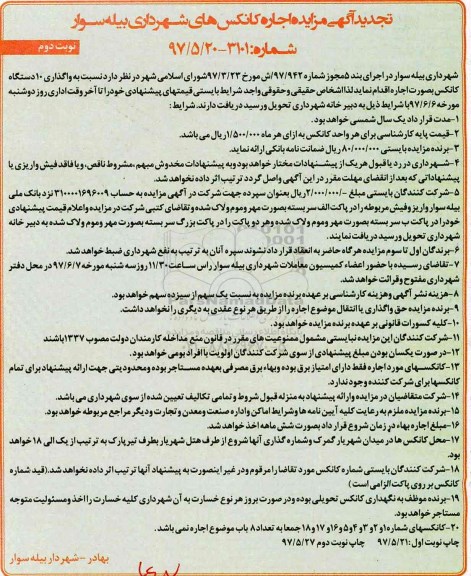 تجدید آگهی مزایده اجاره کانکس های شهرداری بیله سوار
شماره: ۳۱۰۱-۹۷/۵/۲۰
نوبت دوم
شهرداری بیله سوار در اجرای بند ۵ مجوز شماره ۹۷/۹۴۲/ش مورخ ۹۷/۳/۲۳ شورای اسلامی شهر در نظر دارد نسبت به واگذاری ۱۰ دستگاه
کانکس بصورت اجاره اقدام نماید لذا اشخاص حقیقی و حقوقی واجد شرایط بایستی قیمتهای پیشنهادی خود را تا آخر وقت اداری روز دوشنبه
مورخه ۹۷/۶/۶ با شرایط ذیل به دبیر خانه شهرداری تحویل و رسید دریافت دارند. شرایط:
۱-مدت قرار داد یک سال شمسی خواهد بود.
۲-قیمت پایه کارشناسی برای هر واحد کانکس به ازای هر ماه ۱/۵۰۰/۰۰۰ ریال می باشد.
۳-برنده مزایده بایستی ۸۰/۰۰۰/۰۰۰ ریال ضمانت نامه بانکی ارائه نماید.
۴-شهرداری در رد یا قبول هر یک از پیشنهادات مختار خواهد بود و به پیشنهادات مخدوش مبهم، مشروط ناقص، و یا فاقد فیش واریزی یا
پیشنهاداتی که بعد از انقضای مهلت مقرر در این آگهی واصل گردد ترتیب اثر داده نخواهد شد.
۵-شرکت کنندگان بایستی مبلغ -/۲/۰۰۰/۰۰۰ ریال بعنوان سپرده جهت شرکت در آگهی مزایده به حساب ۳۱۰۰۰۰۱۶۹۶۰۰۹ نزد بانک ملی
بیله سوار واریز و فیش مربوطه را در پاکت الف سر بسته بصورت مهر و موم ولاک شده و تقاضای کتبی شرکت در مزایده و اعلام قیمت پیشنهادی
خود را در پاکت ب سر بسته بصورت مهر و موم ولاک شده و هر دو پاکت را در پاکت بزرگ سر بسته بصورت مهر و موم ولاک شده به دبیر خانه
شهرداری تحویل و رسید دریافت نمایند.
۶-برندگان اول تا سوم مزایده هر گاه حاضر به انعقاد قرار داد نشوند سپره آنان به ترتیب به نفع شهرداری ضبط خواهد شد.
۷-تقاضای رسیده با حضور اعضاء کمیسیون معاملات شهرداری بیله سوار راس ساعت ۱۱/۳۰ روز سه شنبه مورخه ۹۷/۶/۷ در محل دفتر
شهرداری مفتوح و قرائت خواهد شد.
۸-هزینه نشر آگهی و هزینه کارشناسی بر عهده برنده مزایده به نسبت یک سهم از سیزده سهم خواهد بود.
۹-برنده مزایده حق واگذاری یا انتقال موضوع اجاره را از طریق هر نوع عقدی به دیگری را نخواهد داشت.
۱۰-کلیه کسورات قانونی بر عهده برنده مزایده خواهد بود.
۱۱-شرکت کنندگان این مزایده نبایستی مشمول ممنوعیت های مقرر در قانون منع مداخله کارمندان دولت مصوب ۱۳۳۷ باشند
۱۲-در صورت یکسان بودن مبلغ پیشنهادی از سوی شرکت کنندگان اولویت با افراد بومی خواهد بود.
۱۳-کانکسهای مورد اجاره فقط دارای امتیاز برق بوده و بهاء برق مصرفی بعهده مستاجر بوده و محدودیتی جهت ارائه پیشنهاد برای تمام
کانکسها برای شرکت کننده وجود ندارد.
۱۴-شرکت متقاضیان در مزایده و ارائه پیشنهاد به منزله قبول شروط و تمامی تکالیف تعیین شده از سوی شهرداری می باشد.
۱۵-برنده مزایده ملزم به رعایت کلیه آیین نامه ها و شرایط اماکن و اداره صنعت و معدن و تجارت و دیگر مراجع مربوطه خواهد بود.
۱۶-مبلغ اجاره بهاء در زمان شروع قرار داد بصورت شش ماهه اخذ خواهد شد.
۱۷-محل کانکس ها در میدان شهریار گمرک و شماره گذاری آنها شروع از طرف هتل شهریار بطرف تیر پارک به ترتیب از یک الی ۱۸ خواهد
بود.
۱۸-شرکت کنندگان بایستی شماره کانکس مورد تقاضا را مرقوم و در غیر اینصورت به پیشنهاد آنها ترتیب اثر داده نخواهد شد.(قید شماره
کانکس بر روی پاکت الزامی است)
۱۹-برنده موظف به نگهداری کانکس تحویلی بوده و در صورت بروز هر نوع خسارت به آن شهرداری کلیه خسارت را اخذ و مسئولیت متوجه
مستاجر خواهد بود.
۲۰-کانکسهای شماره ۱و ۲و ۳و ۴و ۵و ۱۶و ۱۷و ۱۸ جمعا به تعداد ۸ باب موضوع اجاره نمی باشد.
چاپ نوبت اول: ۹۷/۵/۲۱ چاپ نوبت دوم ۹۷/۵/۲۷
بهادر - شهردار بیله سوار